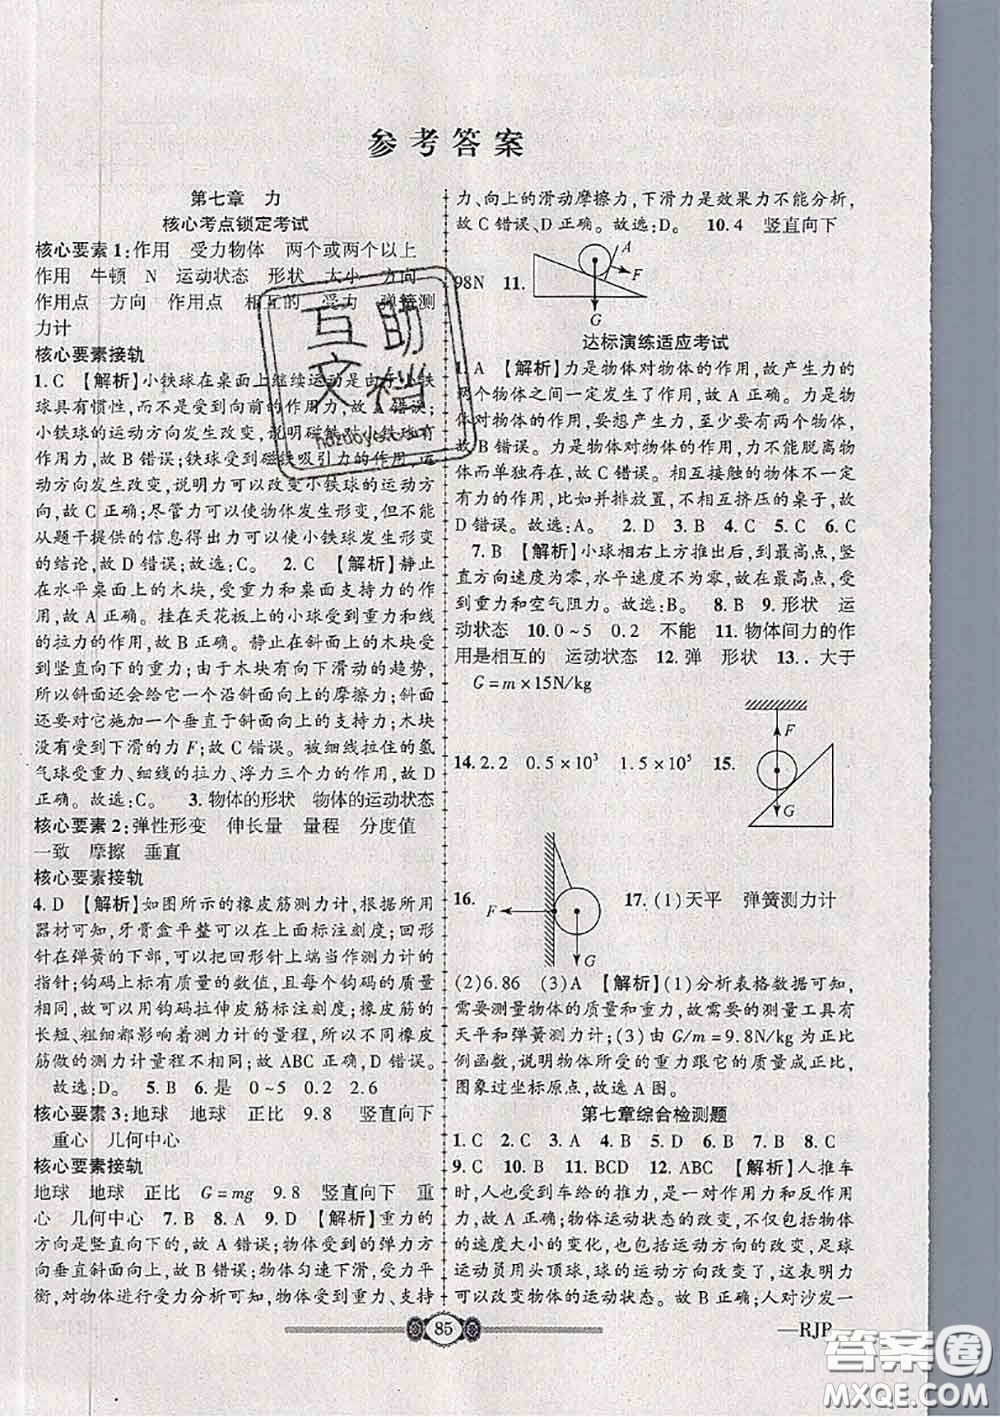 参考答案
第七章　力
核心考点锁定考试
核心要素1:作用　受力物体　两个或两个以上
作用　牛顿　N　运动状态　形状　大小　方向
作用点　方向　作用点　相互的　受力　弹簧测
力计
核心要素接轨
1.C　【解析】小铁球在桌面上继续运动是由于铁
球具有惯性,而不是受到向前的作用力,故A错误;
小铁球的运动方向发生改变,说明磁铁对小铁球有
作用力,故B错误;铁球受到磁铁吸引力的作用,运
动方向发生改变,说明力可以改变小铁球的运动方
向,故C正确;尽管力可以使物体发生形变,但不能
从题干提供的信息得出力可以使小铁球发生形变
的结论,故D错误。故选:C。　2.C　【解析】静止
在水平桌面上的木块,受到重力和桌面支持力的作
用,故A正确。挂在天花板上的小球受到重力和线
的拉力的作用,故B正确。静止在斜面上的木块受
到竖直向下的重力;由于木块有向下滑动的趋势,
所以斜面还会给它一个沿斜面向上的摩擦力;斜面
还要对它施加一个垂直于斜面向上的支持力;木块
没有受到下滑的力F;故C错误。被细线拉住的氢
气球受重力、细线的拉力、浮力三个力的作用,故D
正确。故选:C。　3.物体的形状　物体的运动状态
核心要素2:弹性形变　伸长量　量程　分度值
一致　摩擦　垂直
核心要素接轨
4.D　【解析】如图所示的橡皮筋测力计,根据所用
器材可知,牙膏盒平整可以在上面标注刻度;回形
针在弹簧的下部,可以把回形针上端当作测力计的
指针;钩码上标有质量的数值,且每个钩码的质量
相同,故可以用钩码拉伸皮筋标注刻度;橡皮筋的
长短、粗细都影响着测力计的量程,所以不同橡皮
筋做的测力计量程不相同;故ABC正确,D错误。
故选:D。　5.B　6.是　0~5　0.2　2.6
核心要素3:地球　地球　正比　9.8　竖直向下
重心　几何中心
核心要素接轨
地球　地球　正比　G=mg　9.8　竖直向下　重
心　几何中心　7.B　8.A　9.D　【解析】重力的方
向是竖直向下的,故A错误;物体受到的弹力方向
垂直斜面向上,故B错误;物体匀速下滑,受力平
衡,对物体进行受力分析可知,物体受到重力、支持
力、向上的滑动摩擦力,下滑力是效果力不能分析,
故C错误、D正确。故选:D。　10.4　竖直向下
98N　11.
A
F
G
达标演练适应考试
1.A　【解析】力是物体对物体的作用,故产生力的
两个物体之间一定发生了作用,故A正确。力是物
体对物体的作用,要想产生力,至少要有两个物体,
故B错误。力是物体对物体的作用,力不能脱离物
体而单独存在,故C错误。相互接触的物体不一定
有力的作用,比如并排放置,不相互挤压的桌子,故
D错误。故选:A。　2.D　3.B　4.C　5.C　6.C
7.B　【解析】小球相右上方推出后,到最高点,竖
直方向速度为零,水平速度不为零。故在最高点,
受到重力和空气阻力。故选:B。　8.B　9.形状　运
动状态　10.0~5　0.2　不能　11.物体间力的作
用是相互的　运动状态　12.弹　形状　13.．大于
G=m×15N/kg
14.2.2　0.5×10³　1.5×10⁵　15.
F
G
16.
F
G
17.(1)天平　弹簧测力计
(2)6.86　(3)A　【解析】(1)分析表格数据可知,
需要测量物体的质量和重力,故需要的测量工具有
天平和弹簧测力计;(3)由G/m=9.8N/kg为正比
例函数,说明物体所受的重力跟它的质量成正比,
图象过坐标原点,故选A图。
第七章综合检测题
1.C　2.C　3.A　4.B　5.D　6.B　7.B　8.C
9.C　10.B　11.BCD　12.AC　【解析】人推车
时,人受到车给的推力,是一对作用力和反作用
力,故A正确;物体运动状态的改变,不仅包括物体
的速度大小的变化,也包括运动方向的改变,足球
运动员用头顶球,球的运动方向改变了,这表明力
可以改变物体的运动状态。故B错误;人对沙发一
85
—RJP—
互助文档
hdzuoye.com
答案圈
MXQE.COM